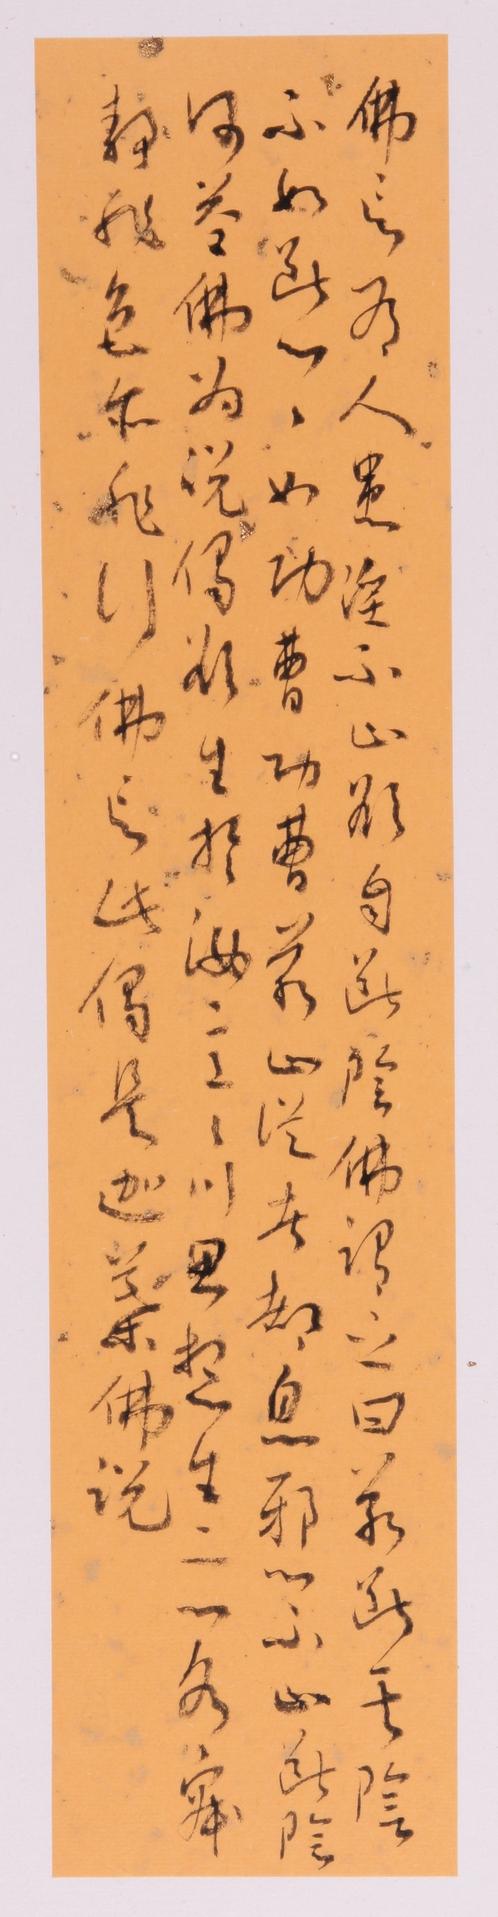 佛言有人患淫不止欲自断陰佛謂之曰若断其陰
不如断心心如功曹功曹若止從者都息邪心不止断陰
何益佛为说偈欲生於汝意意以思想生二心各寂
静非色亦非行佛言此偈是迦葉佛说